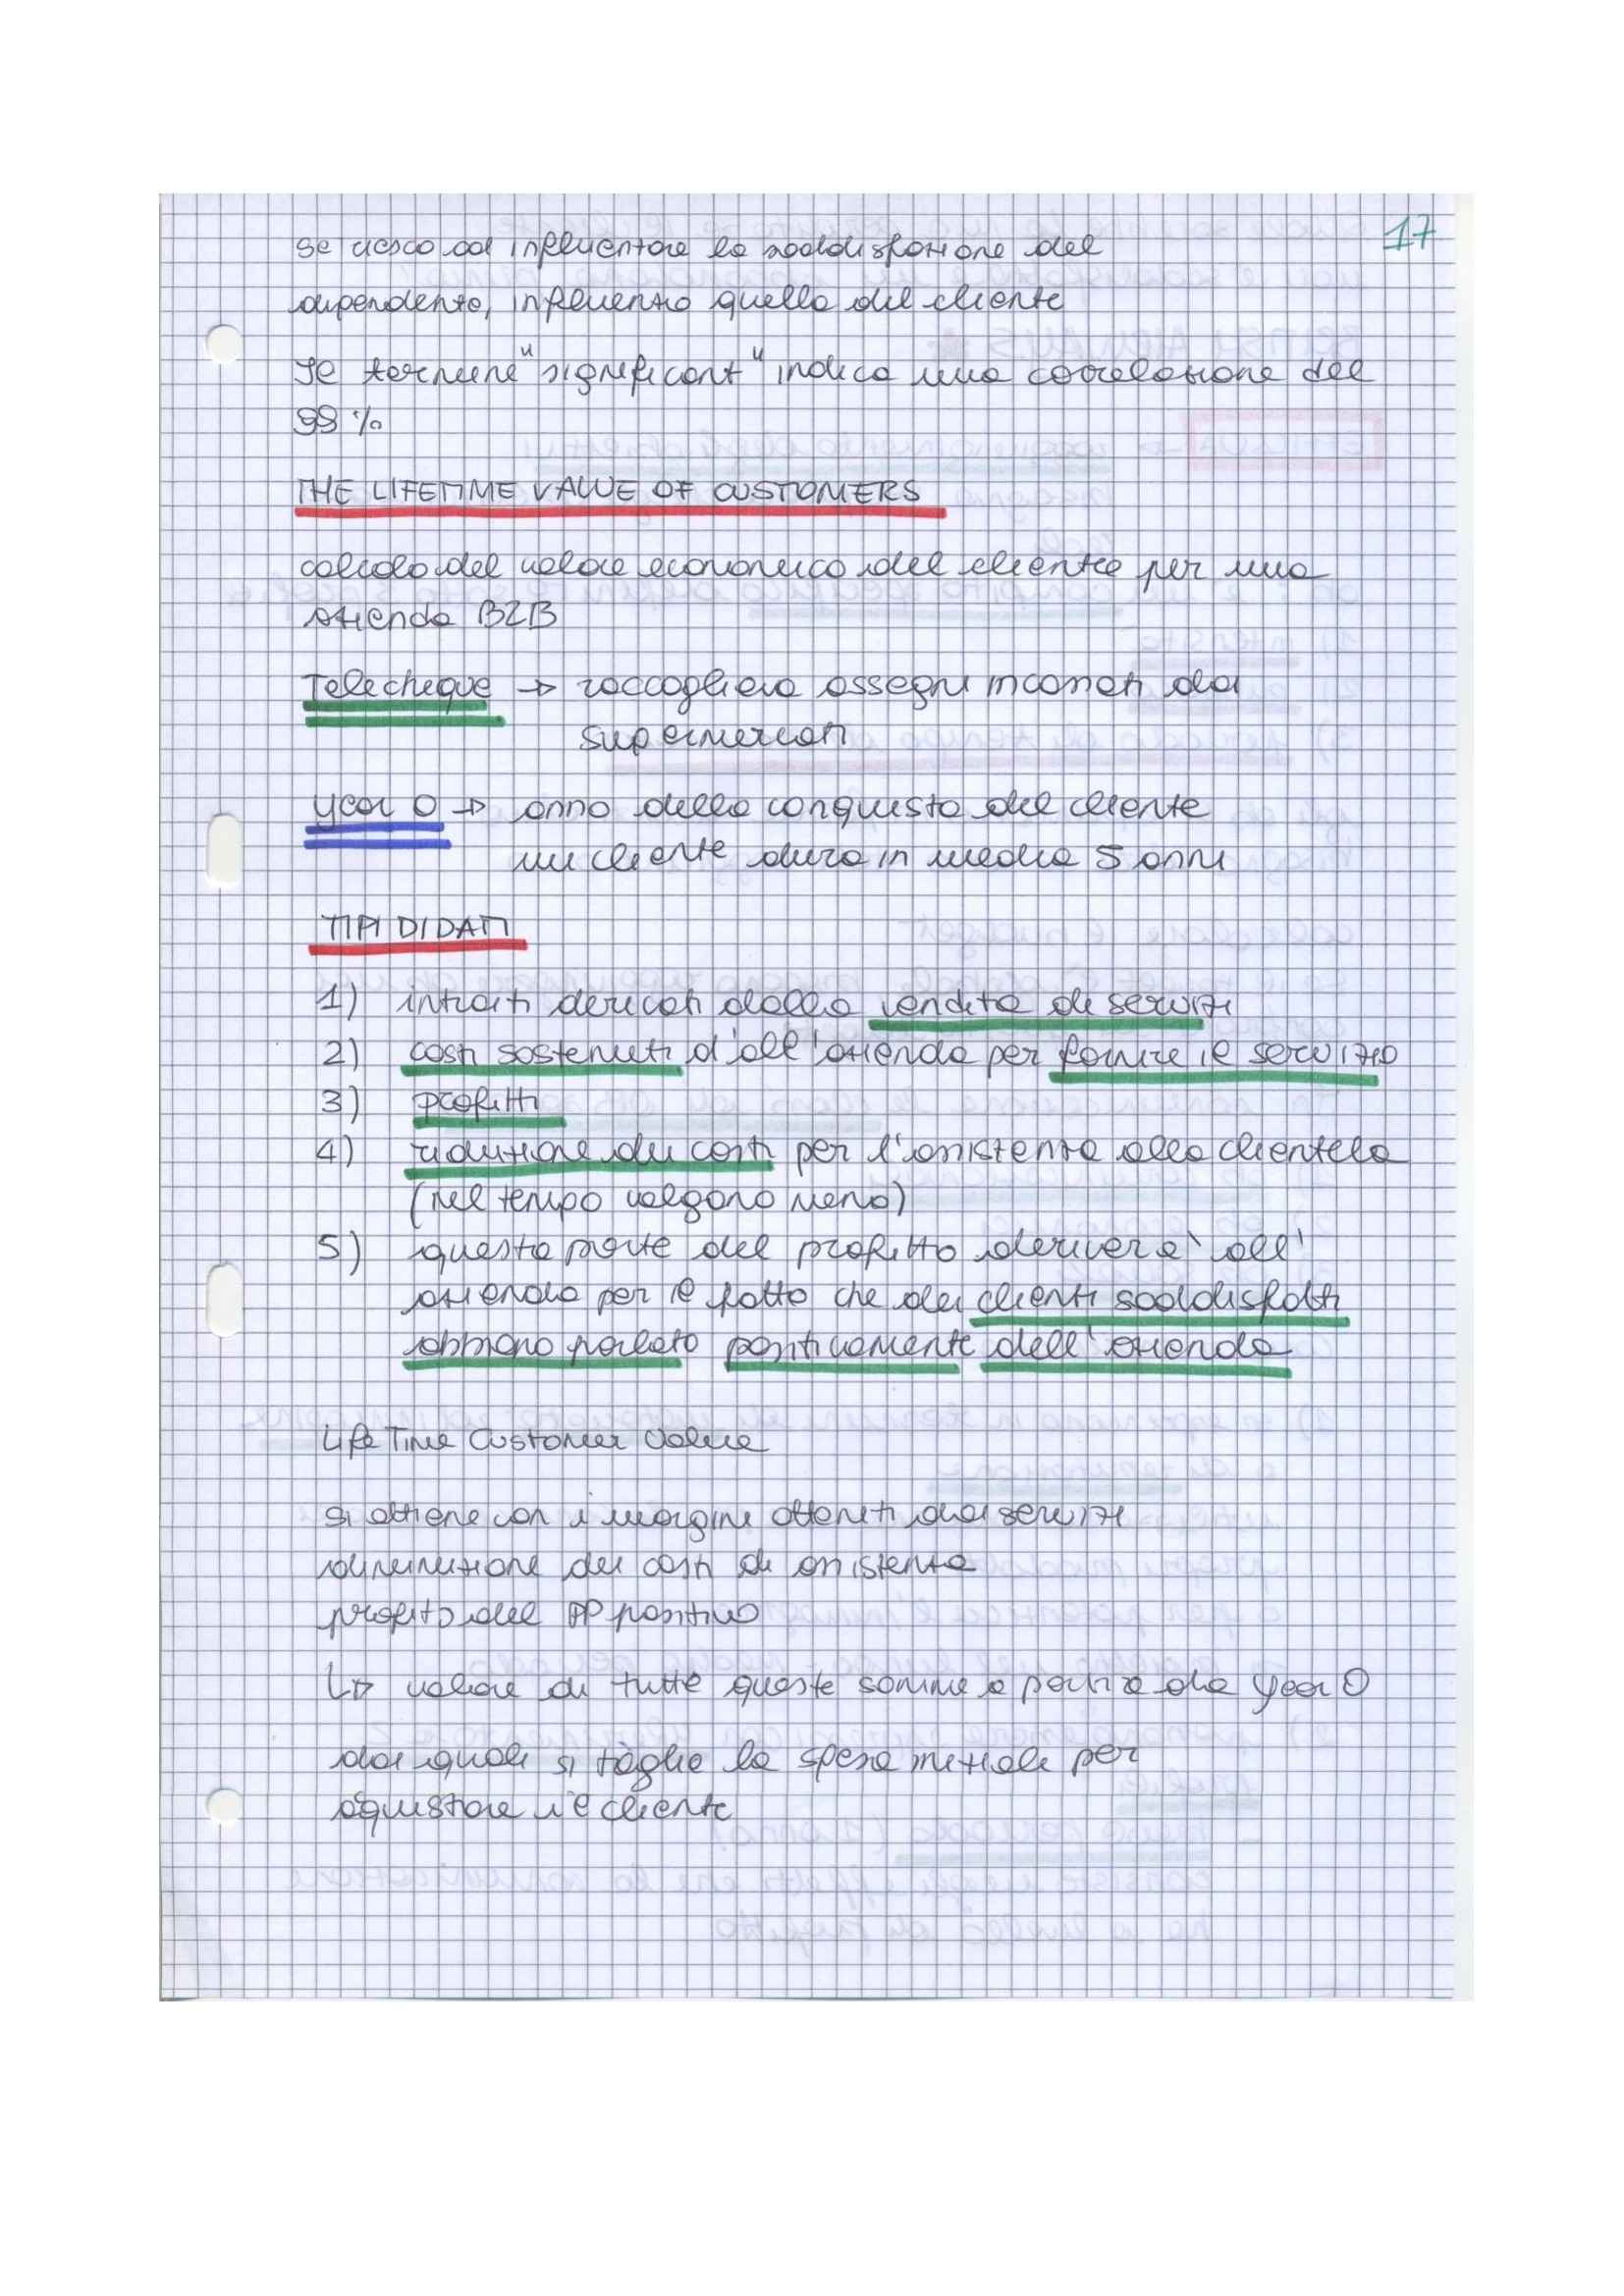 17
se riesco ad influenzare la soddisfazione del
dipendente, influenzo quella del cliente
Il termine "significant" indica una correlazione del
99 %
THE LIFETIME VALUE OF CUSTOMERS
calcolo del valore economico del cliente per una
azienda B2B
Telecheque → raccoglieva assegni incassati dai
supermercati
year 0 → anno della conquista del cliente
un cliente dura in media 5 anni
TIPI DI DATI
1) introiti derivati dalla vendita di servizi
2) costi sostenuti d'all'azienda per fornire il servizio
3) profitti
4) riduzione dei costi per l'assistenza alla clientela
(nel tempo valgono meno)
5) questa parte del profitto deriverà all'
azienda per il fatto che dei clienti soddisfatti
abbiano parlato positivamente dell'azienda
Life Time Customer Value
si ottiene con i margini ottenuti dai servizi
diminuzione dei costi di assistenza
profitto del PP positivo
↳ valore di tutte queste somme a partire da year 0
dai quali si toglie la spesa iniziale per
aquistare il cliente